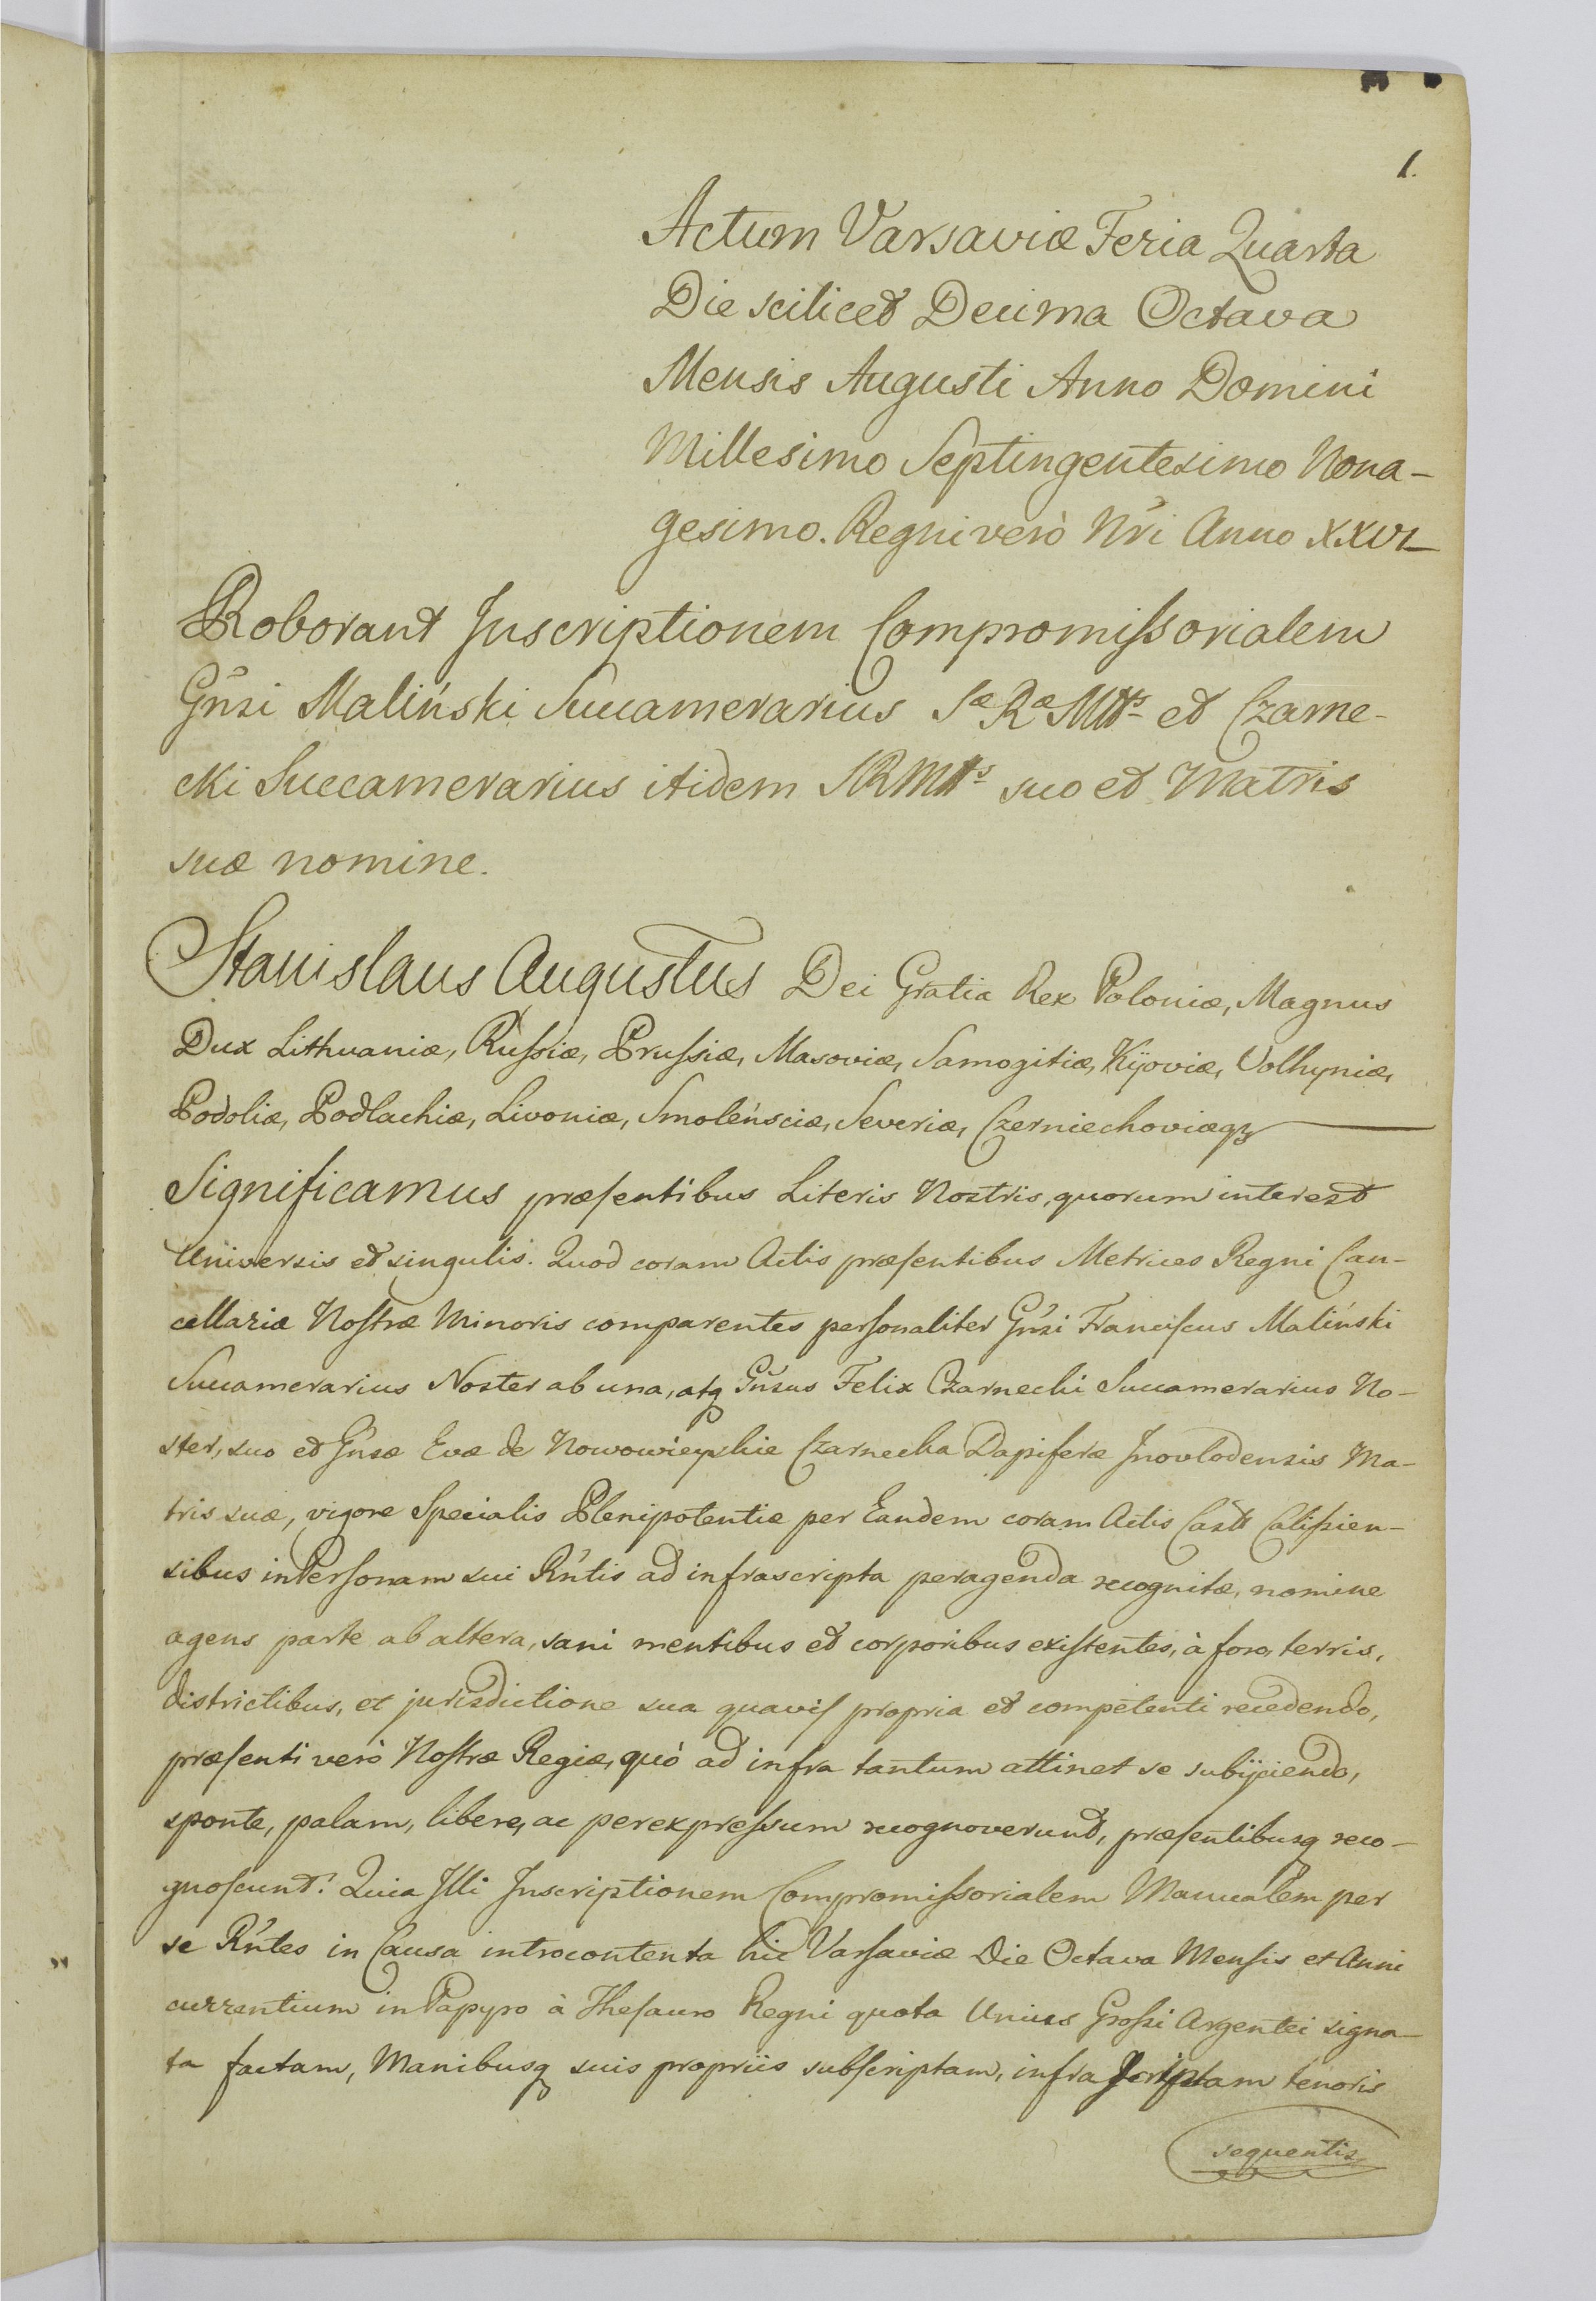 1.
Actum Varsaviæ Feria Quarta
Die scilicet Decima Octava
Mensis Augusti Anno Domini
Millesimo Septingentesimo Nona-
gesimo. Regni verò Nri Anno XXVI
Roborant Inscriptionem Compromissorialem
Gnsi Maliński Succamerarius Sæ Ræ Mttis et Czarne-
cki Succamerarius itidem SRMttis suo et Matris
suæ nomine.
Stanislaus Augustus Dei Gratia Rex Poloniæ, Magnus
Dux Lithuaniæ, Russiæ, Prussiæ, Masoviæ, Samogitiæ, Kijoviæ, Volhyniæ,
Podoliæ, Podlachiæ, Livoniæ, Smoleńsciæ, Severiæ, Czerniechoviæq
Significamus præsentibus Literis Nostris, quorum interest
Universis et singulis. Quod coram Actis præsentibus Metrices Regni Can-
cellariæ Nostræ Minoris comparentes personaliter Gnsi Franciscus Maliński
Succamerarius Noster ab una, atq Gnsus Felix Czarnecki Succamerarius No-
ster, suo et Gnsæ Evæ de Nowowieyskie Czarnecka Dapiferæ Inovlodensis Ma-
tris suæ, vigore Specialis Plenipotentiæ per Eandem coram Actis Castr Calissien-
sibus in Personam sui Rntis ad infrascripta peragenda recognitæ, nomine
agens parte ab altera, sani mentibus et corporibus existentes, à foro, terris,
districtibus, et jurisdictione sua quavis propria et competenti recedendo,
præsenti verò Nostræ Regiæ, quò ad infra tantum attinet se subijciendo,
sponte, palam, libere, ac per expressum recognoverunt, præsentibusq reco-
gnoscunt. Quia Illi Inscriptionem Compromissorialem Manualem per
se Rntes in Causa introcontenta hic Varsaviæ Die Octava Mensis et Anni
currentium in Papyro à Thesauro Regni quota Unius Grossi Argentei signa-
ta factam, Manibusq suis propriis subscriptam, infra scriptam tenoris
sequentis